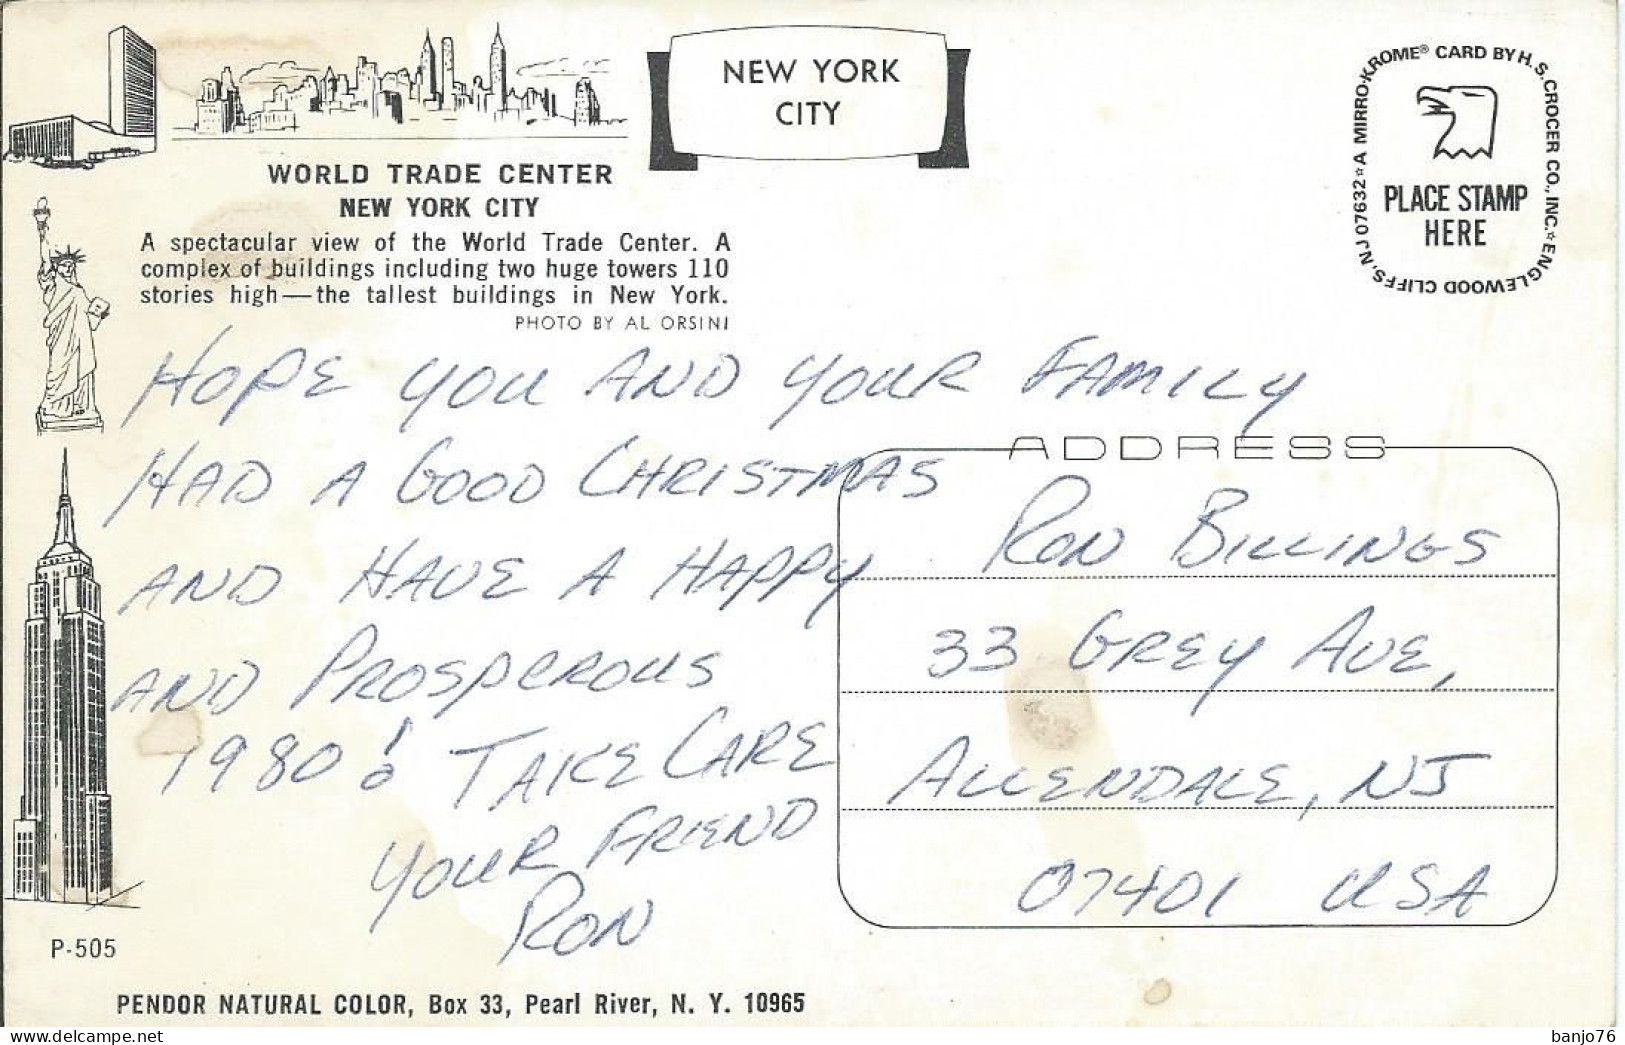 NEW YORK
CITY
A MIRRO-KROME® CARD BY H. S. CROCER CO., INC. ☆ ENGLEWOOD CLIFFS, NJ 07632 ☆
PLACE STAMP
HERE
WORLD TRADE CENTER
NEW YORK CITY
A spectacular view of the World Trade Center. A
complex of buildings including two huge towers 110
stories high—the tallest buildings in New York.
PHOTO BY AL ORSINI
HOPE YOU AND YOUR FAMILY
HAD A GOOD CHRISTMAS
AND HAVE A HAPPY
AND PROSPEROUS
1980! TAKE CARE
YOUR FRIEND
RON
ADDRESS
RON BILLINGS
33 GREY AVE,
ALLENDALE, NJ
07401 USA
P-505
PENDOR NATURAL COLOR, Box 33, Pearl River, N. Y. 10965
banjo76